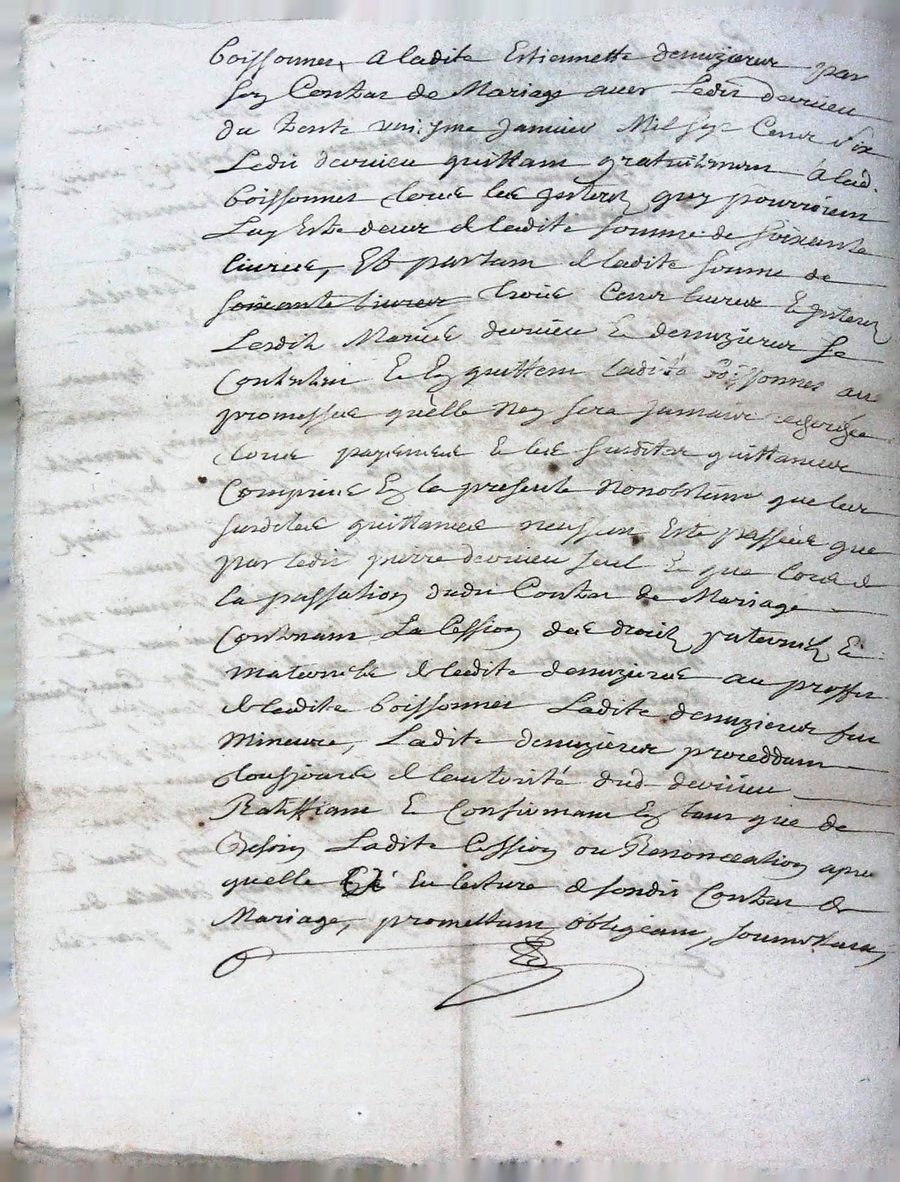 boissonnes, a ladite Estiennette demizieux par
son Contrat de Mariage avec Ledit devrieu
du trente uniesme Janvier Mil sept Cent Six
Ledit devrieu quittant gratuitement a lad.
boissonnes tous les jnterets quy pourroient
Luy Estre deux de ladite somme de soixante
livres, Et partant de ladite somme de
soixante livres trois Cent livres Et jnterets
Lesdits Mariés devrieu Et demizieux se
Contentent Et En quittent ladite boissonnes avec
promesses quelle ney sera jamais recherchée
tous payements Et les susdites quittances
Comprises En la presente Nonobstant que les
susdites quittances neussent Esté passées que
par ledit pierre devrieu seul Et que lors de
la passation dudit Contrat de Mariage
Contenant La Cession des droits paternels Et
maternels de ladite demizieux au proffit
de ladite boissonnes Ladite demizieux fut
Mineure, Ladite demizieux proceddant
tousjours de lautorité dud. devrieu
Ratiffiant Et Confirmant En tant que de
Besoin Ladite Cession ou Renonceation apres
quelle a Eu lecture de sondit Contrat de
Mariage, promettant, obligeant, soumettant,